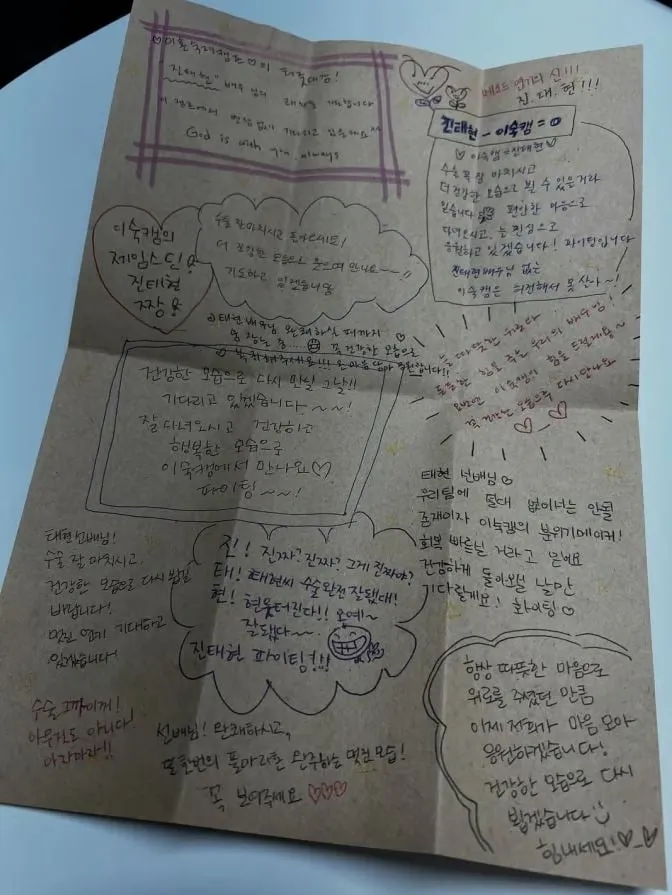 ♡이혼숙려캠프♡의 최고대장!
"진태현" 배우 님의 쾌차를 기도합니다
이 캠프에서 변함 없이 기다리고 있을게요^^
God is with you always
메소드 연기의 신!!!
진.태.현!!!
진태현 - 이숙캠 = 0
♡ 이숙캠=진태현 ♡
수술 꼭 잘 마치시고
더 건강한 모습으로 뵐 수 있을거라
믿습니다 편안한 마음으로
다녀오시고, 늘 진심으로
응원하고 있겠습니다! 파이팅입니다
진태현 배우님 없는
이숙캠은 허전해서 못 산다~!
이숙캠의
제임스딘!
진태현
짱
수술 잘 마치시고 돌아오세요!
더 건강한 모습으로 웃으며 만나요~~!!
기도하고 있겠습니당
태현 배우님 완쾌하실 때까지
꼭 건강한 모습으로
복귀해주세용!!!
늘 따뜻한 위로와
든든한 힘을 주는 우리의 배우님!
이번엔 이숙캠이 힘을 드릴게요~
꼭 건강한 모습으로 다시 만나요
건강한 모습으로 다시 만날 그날!!
기다리고 있겠습니다~~!
잘 다녀오시고 건강하고
행복한 모습으로
이숙캠에서 만나요♡
파이팅~~!
태현 선배님♡
우리팀에 절대 없어서는 안될
존재이자 이숙캠의 분위기메이커!
회복 빠르실 거라고 믿어요
건강하게 돌아오실 날만
기다릴게요! 화이팅♡
태현선배님!
수술 잘 마치시고,
건강한 모습으로 다시 뵙길
바랍니다!
멋진 연기 기대하고
있겠습니다!
진! 진짜? 진짜? 그게 진짜야?
태! 태현씨 수술완전 잘됐대!
현! 현웃터진다!! 오예~
잘됐다~~
진태현 파이팅!!!
수술 그까이꺼!
아무것도 아니다!
아자아자!!
선배님! 완쾌하시고,
또 한번의 풀마라톤 완주하는 멋진 모습!
꼭 보여주세요 ♡♡♡
항상 따뜻한 마음으로
위로를 주셨던 만큼
이제 저희가 마음 모아
응원하겠습니다!
건강한 모습으로 다시
뵙겠습니다
힘내세요!